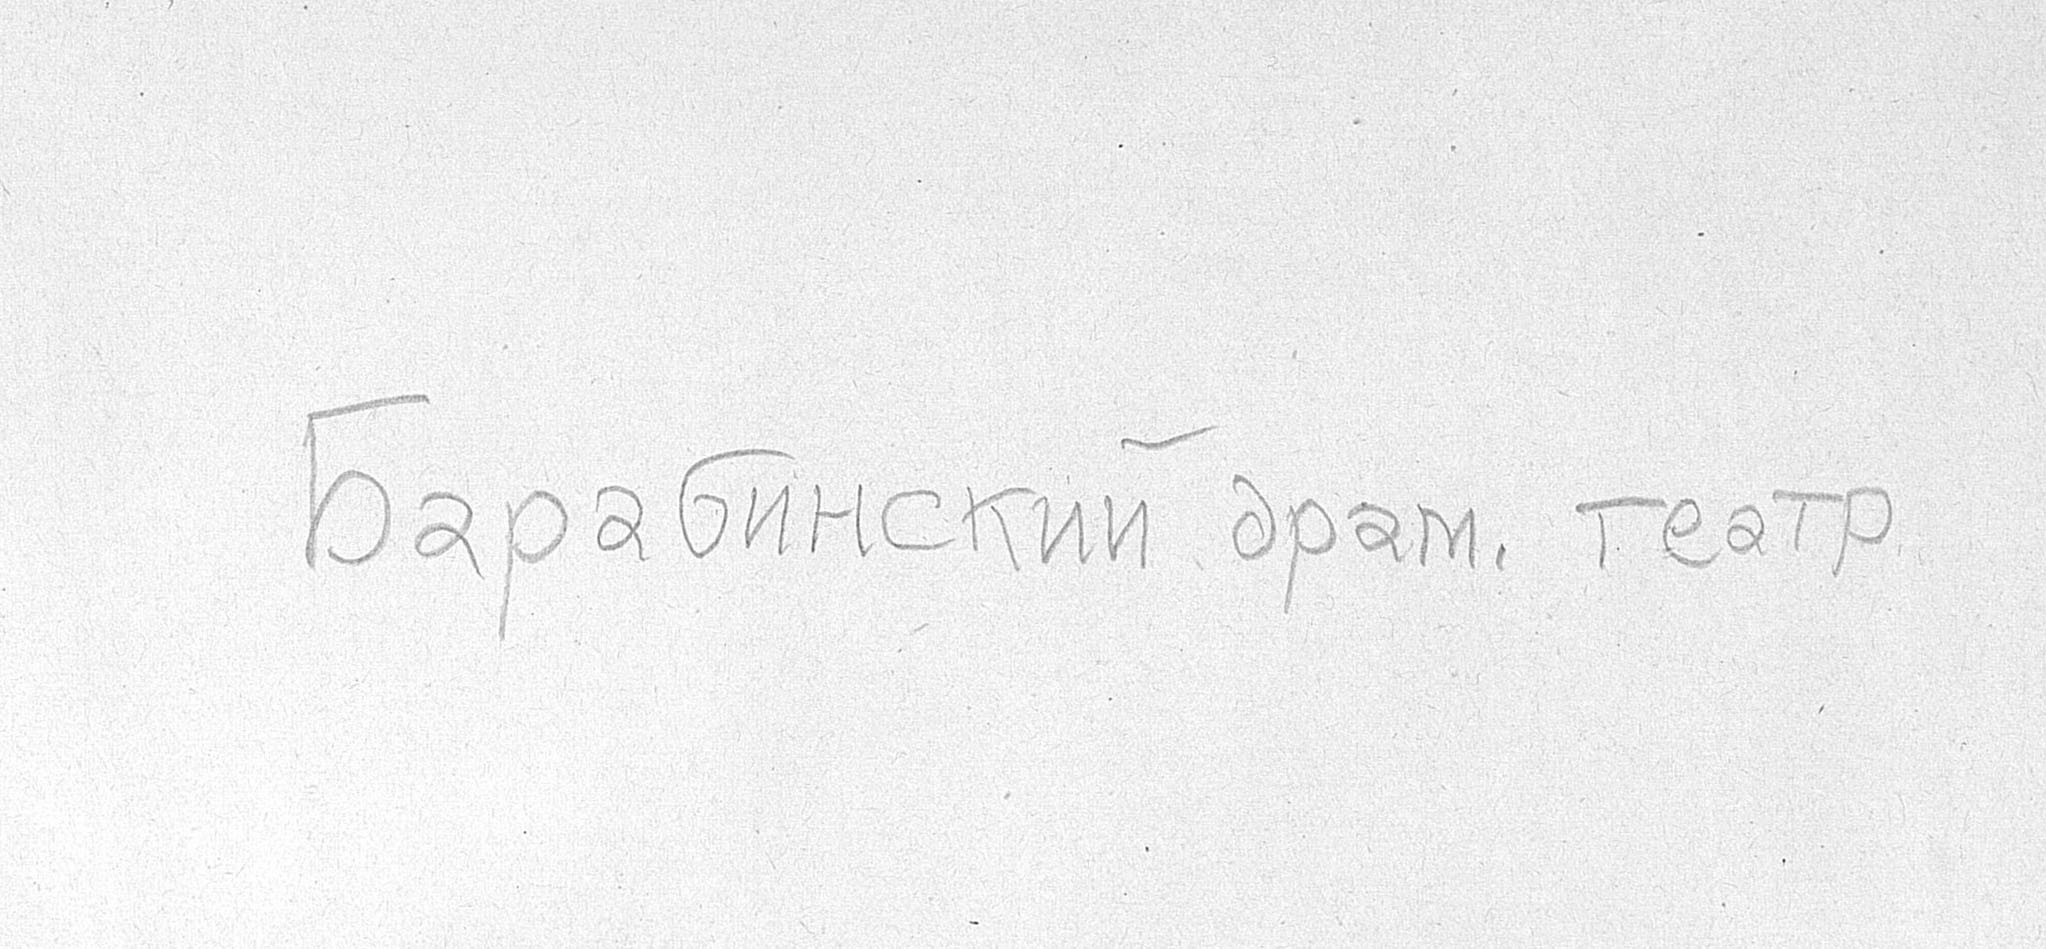 Барабинский драм. театр